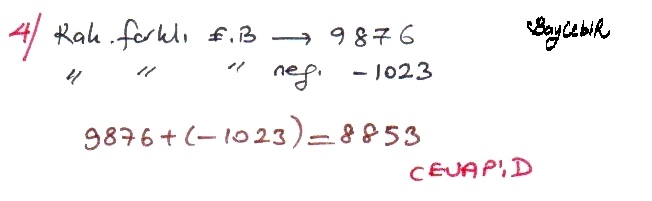 4/ Rak. farklı E.B → 9876
SayCebiR
" " " neg. -1023
9876+(-1023)=8853
CEVAP: D